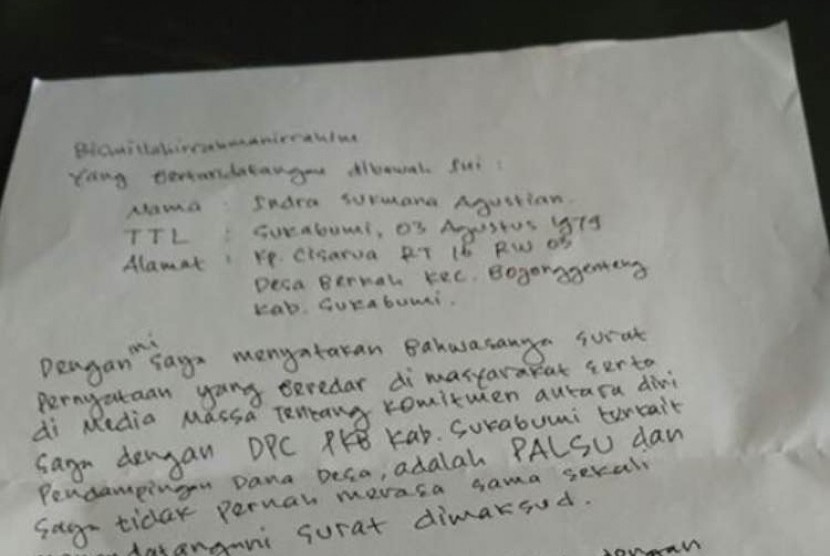 Bismillahirrahmanirrahim
Yang Bertandatangan dibawah Ini :
Nama : Indra Surmana Agustian.
TTL : Sukabumi, 03 Agustus 1979
Alamat : Kp. Cisarua RT 16 RW 05
Desa Berkah Kec. Bojonggenteng
Kab. Sukabumi.
Dengan ini saya menyatakan Bahwasanya surat
Pernyataan yang Beredar di masyarakat serta
di Media Massa Tentang Komitmen antara diri
saya dengan DPC PKB Kab. Sukabumi terkait
Pendampingan Dana Desa, adalah PALSU dan
saya tidak pernah merasa sama sekali
surat dimaksud.
dengan